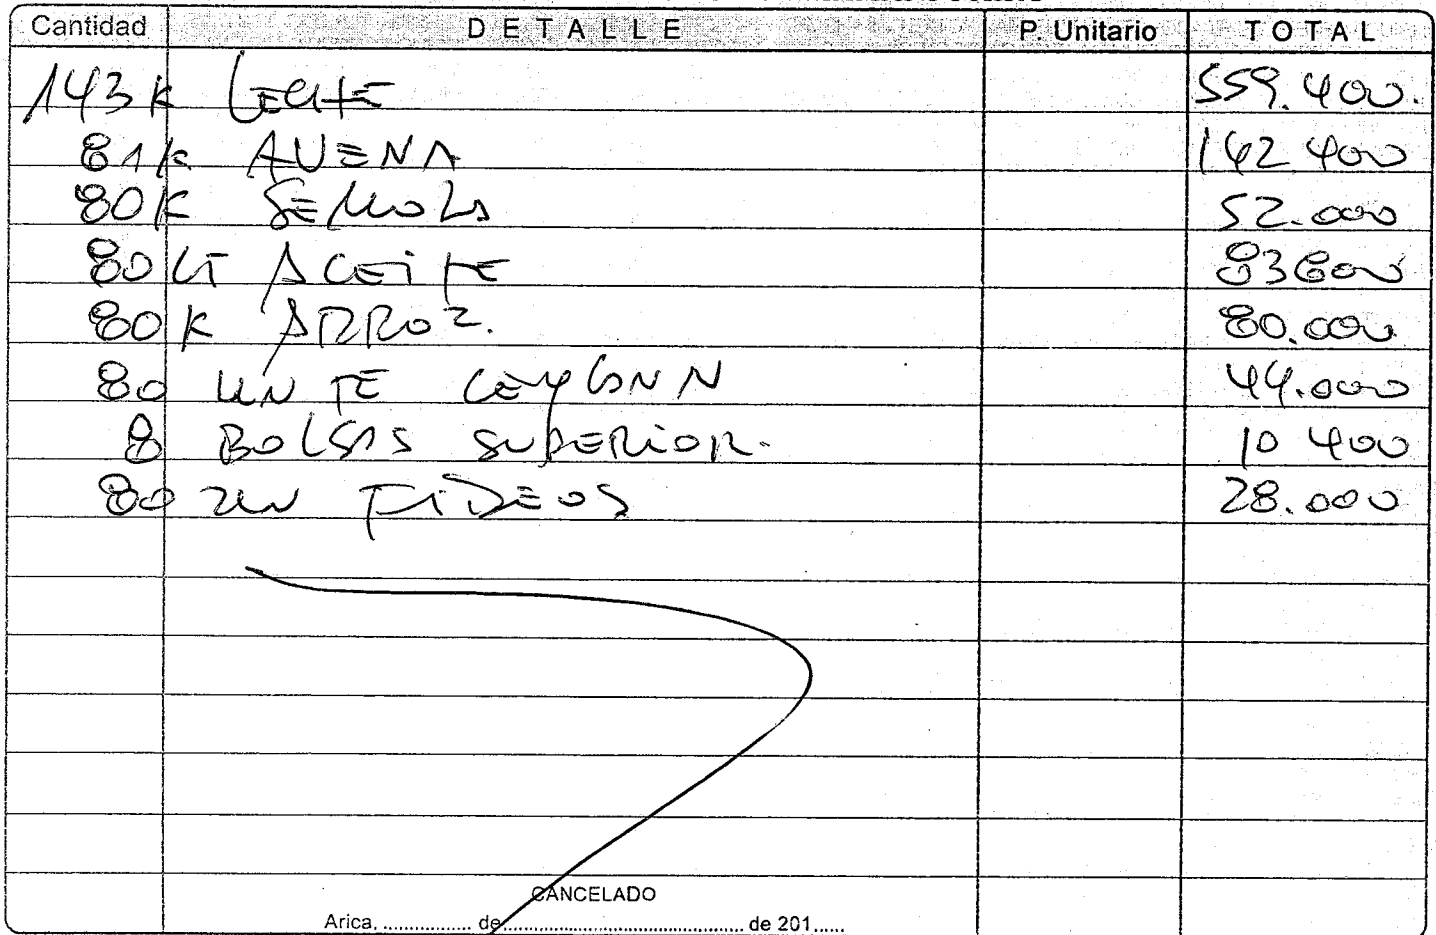 Cantidad DETALLE P. Unitario TOTAL
143 K LECHE 559.400.
81 K AVENA 162 400
80 K SEMOLA 52.000
80 LT ACEITE 83600
80 K ARROZ. 80.000
80 UN TE CEYLAN 44.000
8 BOLSAS SUPERIOR. 10 400
80 UN FIDEOS 28.000
CANCELADO
Arica, ................ de ............................................. de 201......